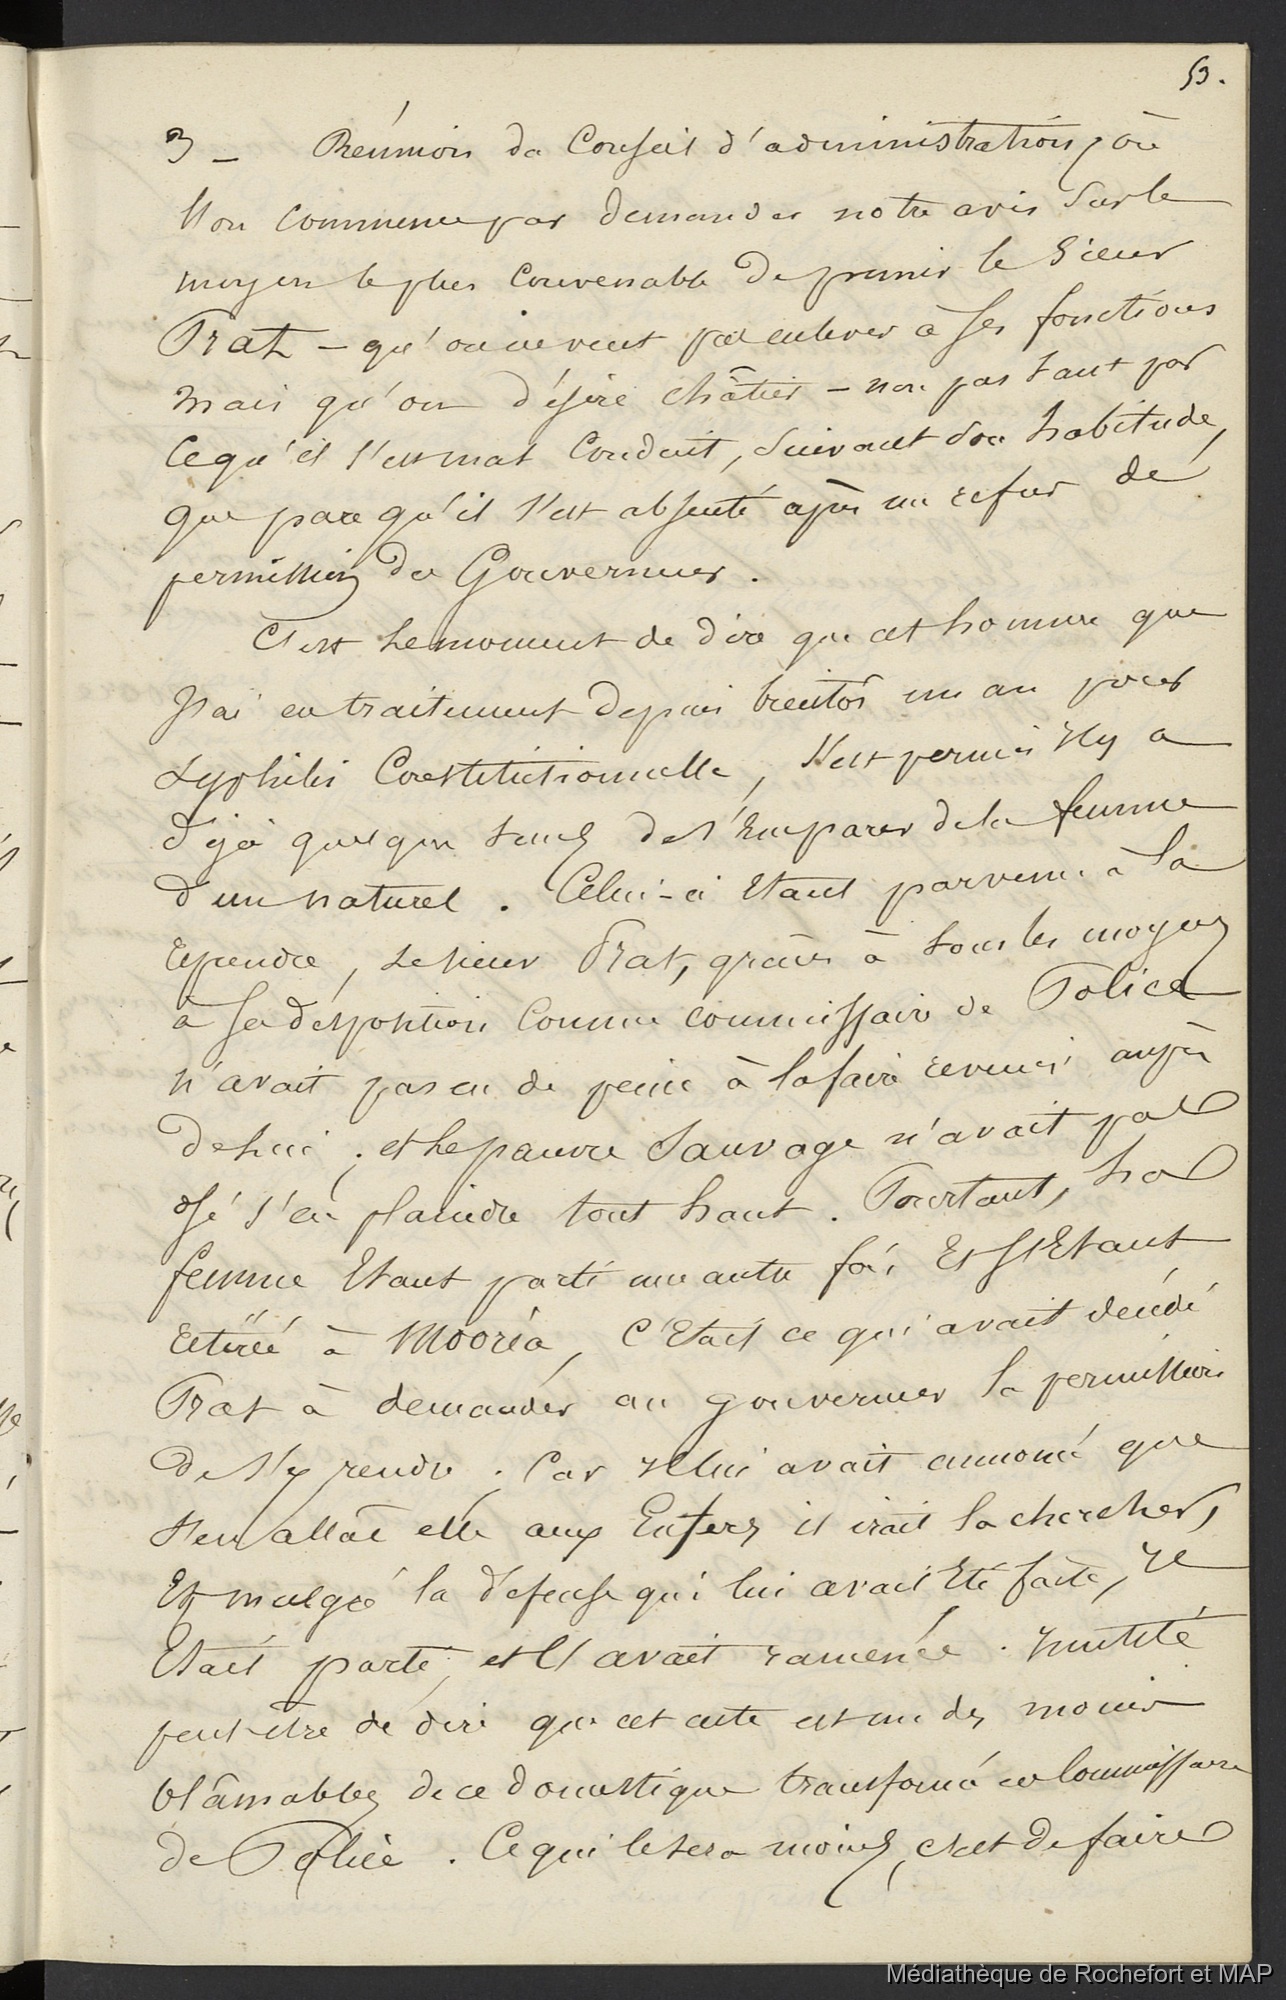 53.
3 – Réunion du Conseil d'administration, où
l'on commence par demander notre avis sur le
moyen le plus convenable de punir le Sieur
Prat – qu'on ne veut pas enlever à ses fonctions
mais qu'on désire châtier – non pas tant par
ce qu'il s'est mal conduit, suivant son habitude,
que parce qu'il s'est absenté après un refus de
permission du Gouverneur.
C'est le moment de dire que cet homme que
j'ai en traitement depuis bientôt un an pour
syphilis constitutionnelle, s'est permis il y a
déjà quelque temps de s'emparer de la femme
d'un naturel. Celui-ci étant parvenu à la
reprendre, le sieur Prat, grâce à tous les moyens
à sa disposition comme commissaire de Police
n'avait pas eu de peine à la faire revenir auprès
de lui ; et le pauvre Sauvage n'avait pas
osé s'en plaindre tout haut. Pourtant, la
femme étant parti une autre fois et s'étant
retirée à Mooréa, c'était ce qui avait décidé
Prat à demander au gouverneur la permission
de s'y rendre. Car il lui avait annoncé que
s'en allât elle aux Enfers il irait la chercher,
Et malgré la défense qui lui avait été faite, il
était parti, et l'avait ramenée. Inutile
peut-être de dire que cet acte est un des moins
blâmables de ce domestique transformé en Commissaire
de Police. Ce qui le sera moins, c'est de faire
Médiathèque de Rochefort et MAP